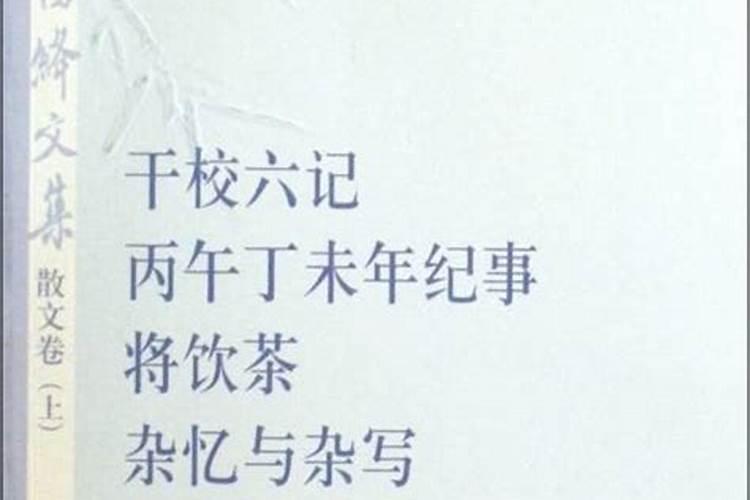 绛文集
散文卷（上）
干校六记
丙午丁未年纪事
将饮茶
杂忆与杂写